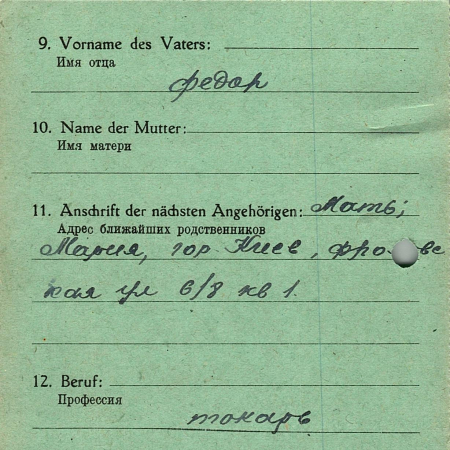 9. Vorname des Vaters:
Имя отца
федор
10. Name der Mutter:
Имя матери
11. Anschrift der nächsten Angehörigen: Мать;
Адрес ближайших родственников
Мария, гор Киев,
кая ул 6/8 кв 1.
12. Beruf:
Профессия
токарь